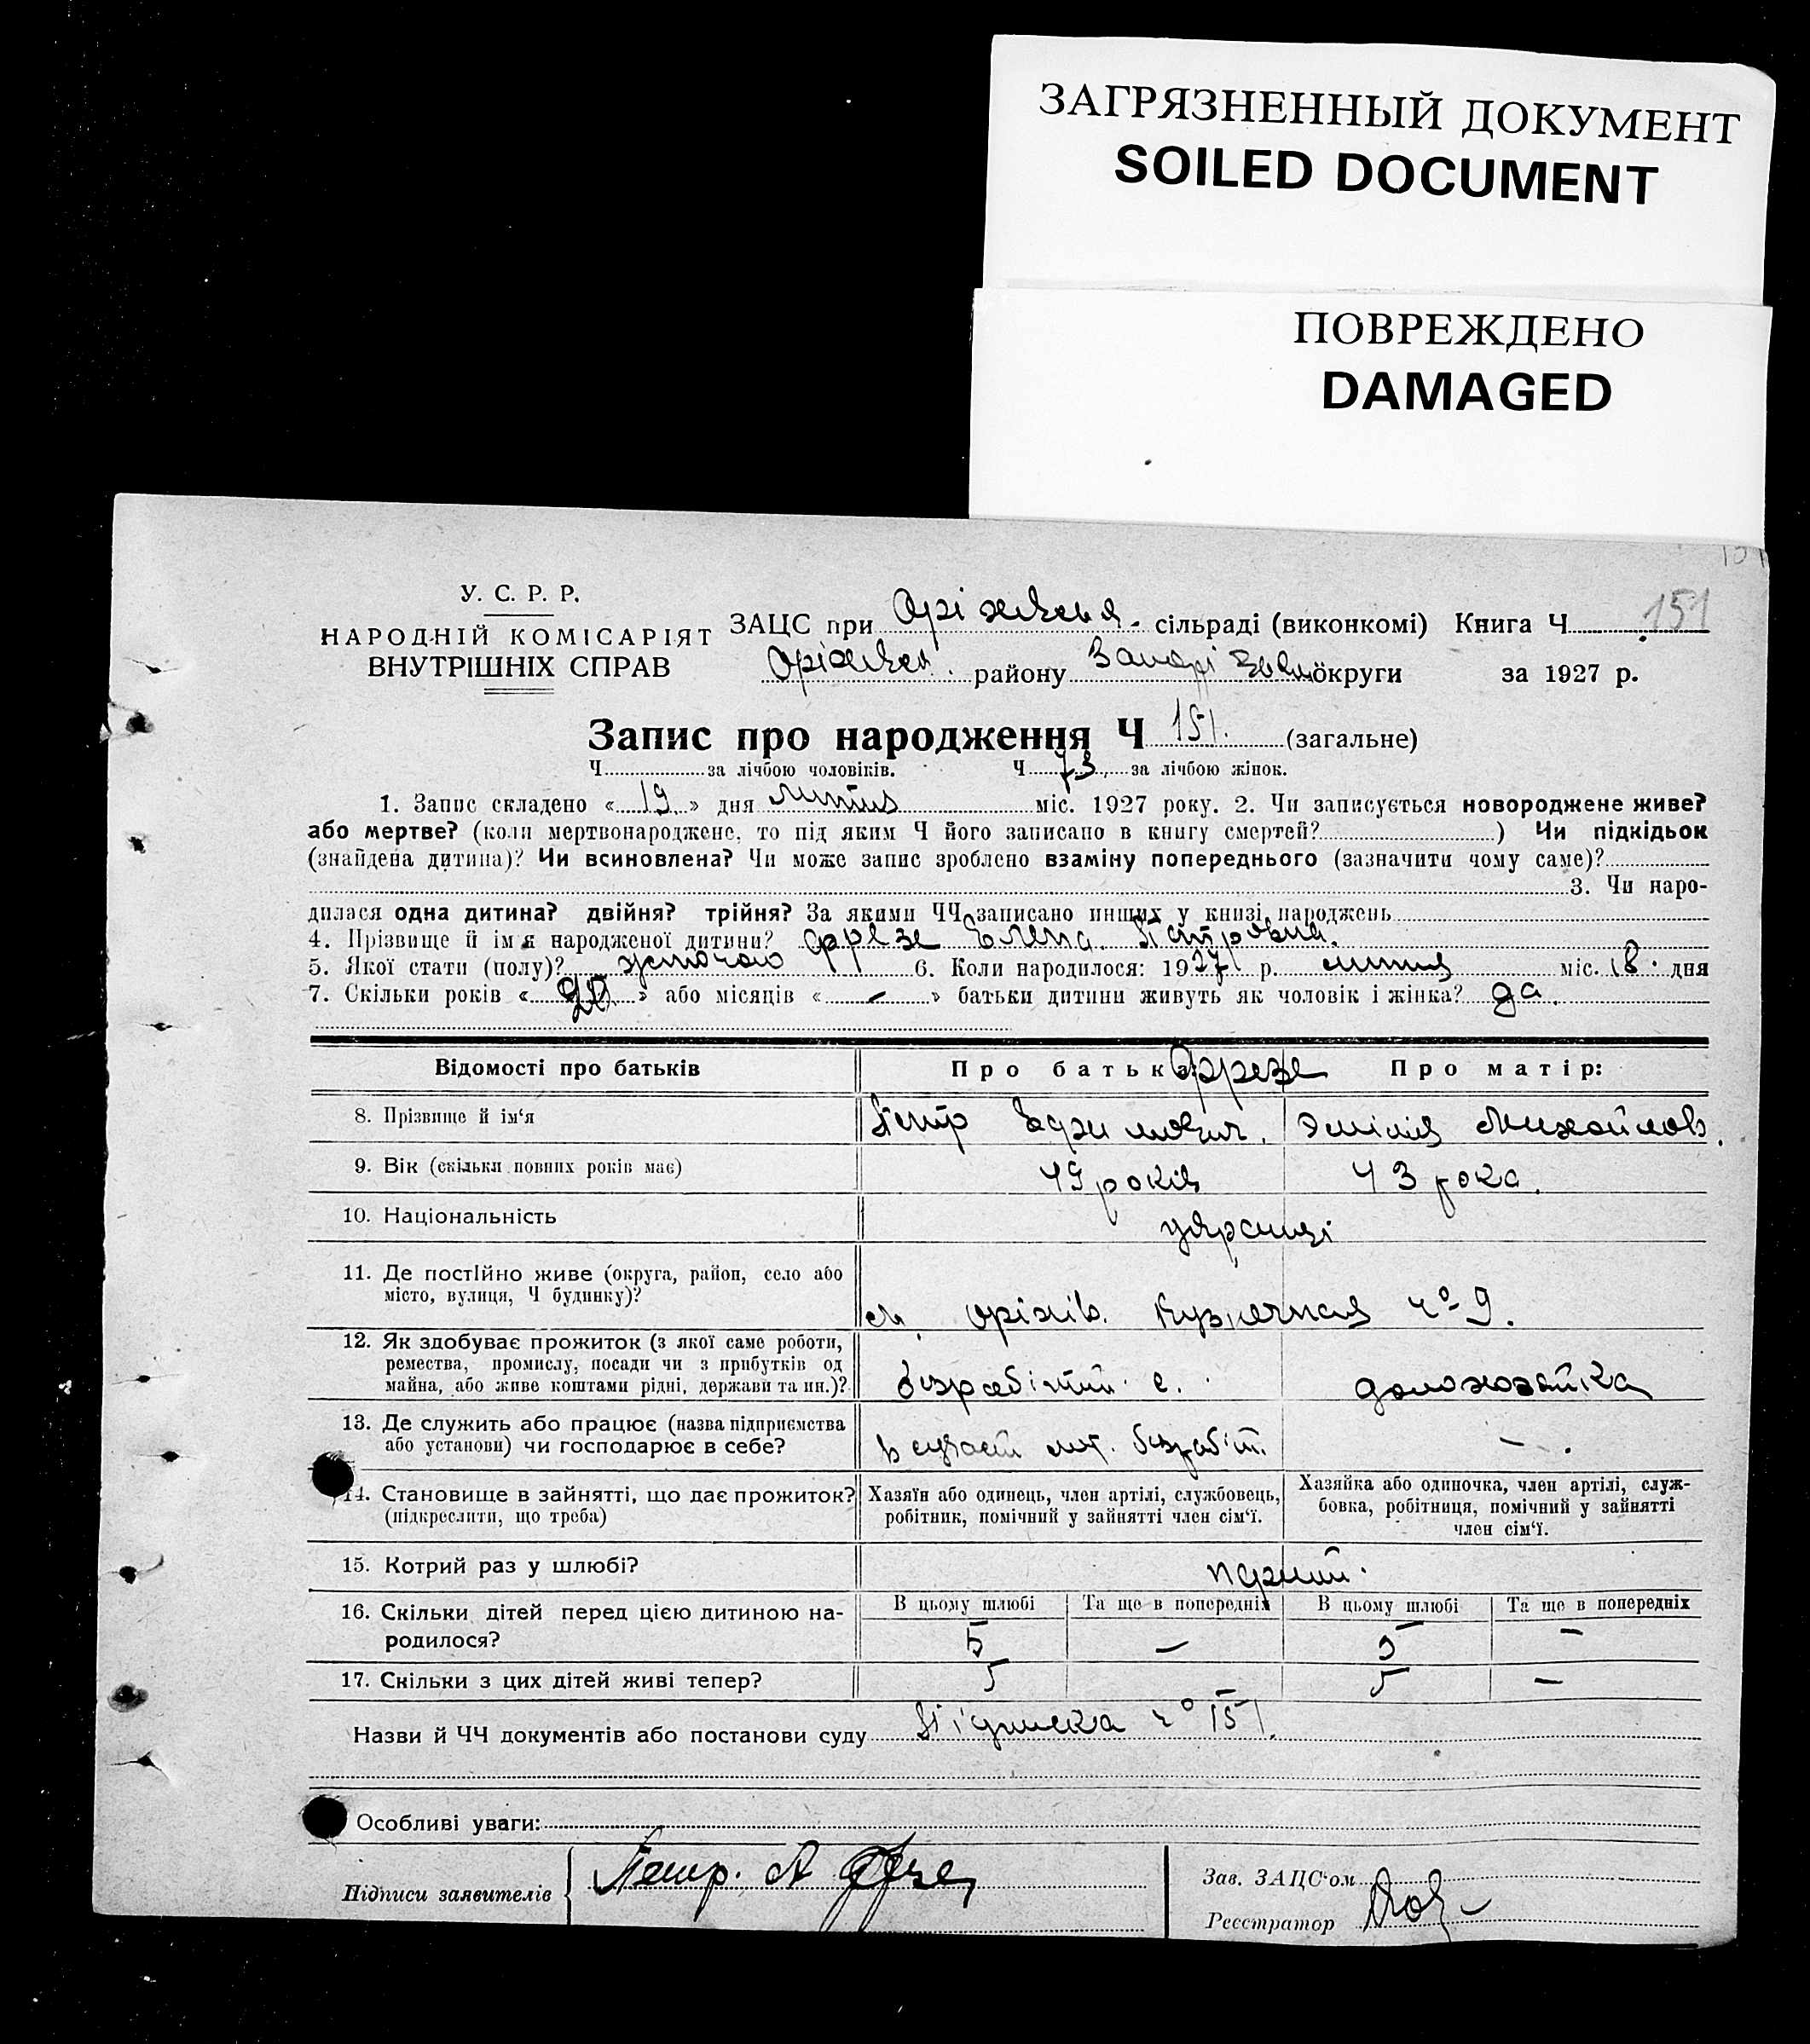 ЗАГРЯЗНЕННЫЙ ДОКУМЕНТ
SOILED DOCUMENT
ПОВРЕЖДЕНО
DAMAGED
У. С. Р. Р.
НАРОДНІЙ КОМІСАРІЯТ
ВНУТРІШНІХ СПРАВ
ЗАЦС при сільраді (виконкомі) Книга Ч 151
району округи за 1927 р.
Запис про народження Ч 151. (загальне)
Ч за лічбою чоловіків. Ч 73 за лічбою жінок.
1. Запис складено « 19 » дня липня міс. 1927 року. 2. Чи записується новороджене живе?
або мертве? (коли мертвонароджене, то під яким Ч його записано в книгу смертей? ) Чи підкідьок
(знайдена дитина)? Чи всиновлена? Чи може запис зроблено взаміну попереднього (зазначити чому саме)?
3. Чи наро-
дилася одна дитина? двійня? трійня? За якими ЧЧ записано инших у книзі народжень
4. Прізвище й ім'я народженої дитини? Фрезе Елена Петровна.
5. Якої стати (полу)? жіночою 6. Коли народилося: 1927 р. липня міс. 18. дня
7. Скільки років « 20 » або місяців « — » батьки дитини живуть як чоловік і жінка? да.
Відомості про батьків Про батька: Фрезе Про матір:
8. Прізвище й ім'я Петр Эмілія Михайлов.
9. Вік (скільки повних років має) 49 років 43 рока.
10. Національність
11. Де постійно живе (округа, район, село або
місто, вулиця, Ч будинку)? м. Оріхів. Кузнечная Ч° 9.
12. Як здобуває прожиток (з якої саме роботи,
ремества, промислу, посади чи з прибутків од
майна, або живе коштами рідні, держави та ин.)? домохозайка
13. Де служить або працює (назва підприємства
або установи) чи господарює в себе? — .
14. Становище в зайнятті, що дає прожиток?
(підкреслити, що треба)
Хазяїн або одинець, член артілі, службовець,
робітник, помічний у зайнятті член сім'ї.
Хазяйка або одиночка, член артілі, служ-
бовка, робітниця, помічний у зайнятті
член сім'ї.
15. Котрий раз у шлюбі? перший.
16. Скільки дітей перед цією дитиною на-
родилося?
В цьому шлюбі Та ще в попередніх В цьому шлюбі Та ще в попередніх
5 — 5 —
17. Скільки з цих дітей живі тепер? 5 5 —
Назви й ЧЧ документів або постанови суду Підписка Ч° 151.
Особливі уваги:
Підписи заявителів Петр. А Фрезе
Зав. ЗАЦС'ом
Реєстратор